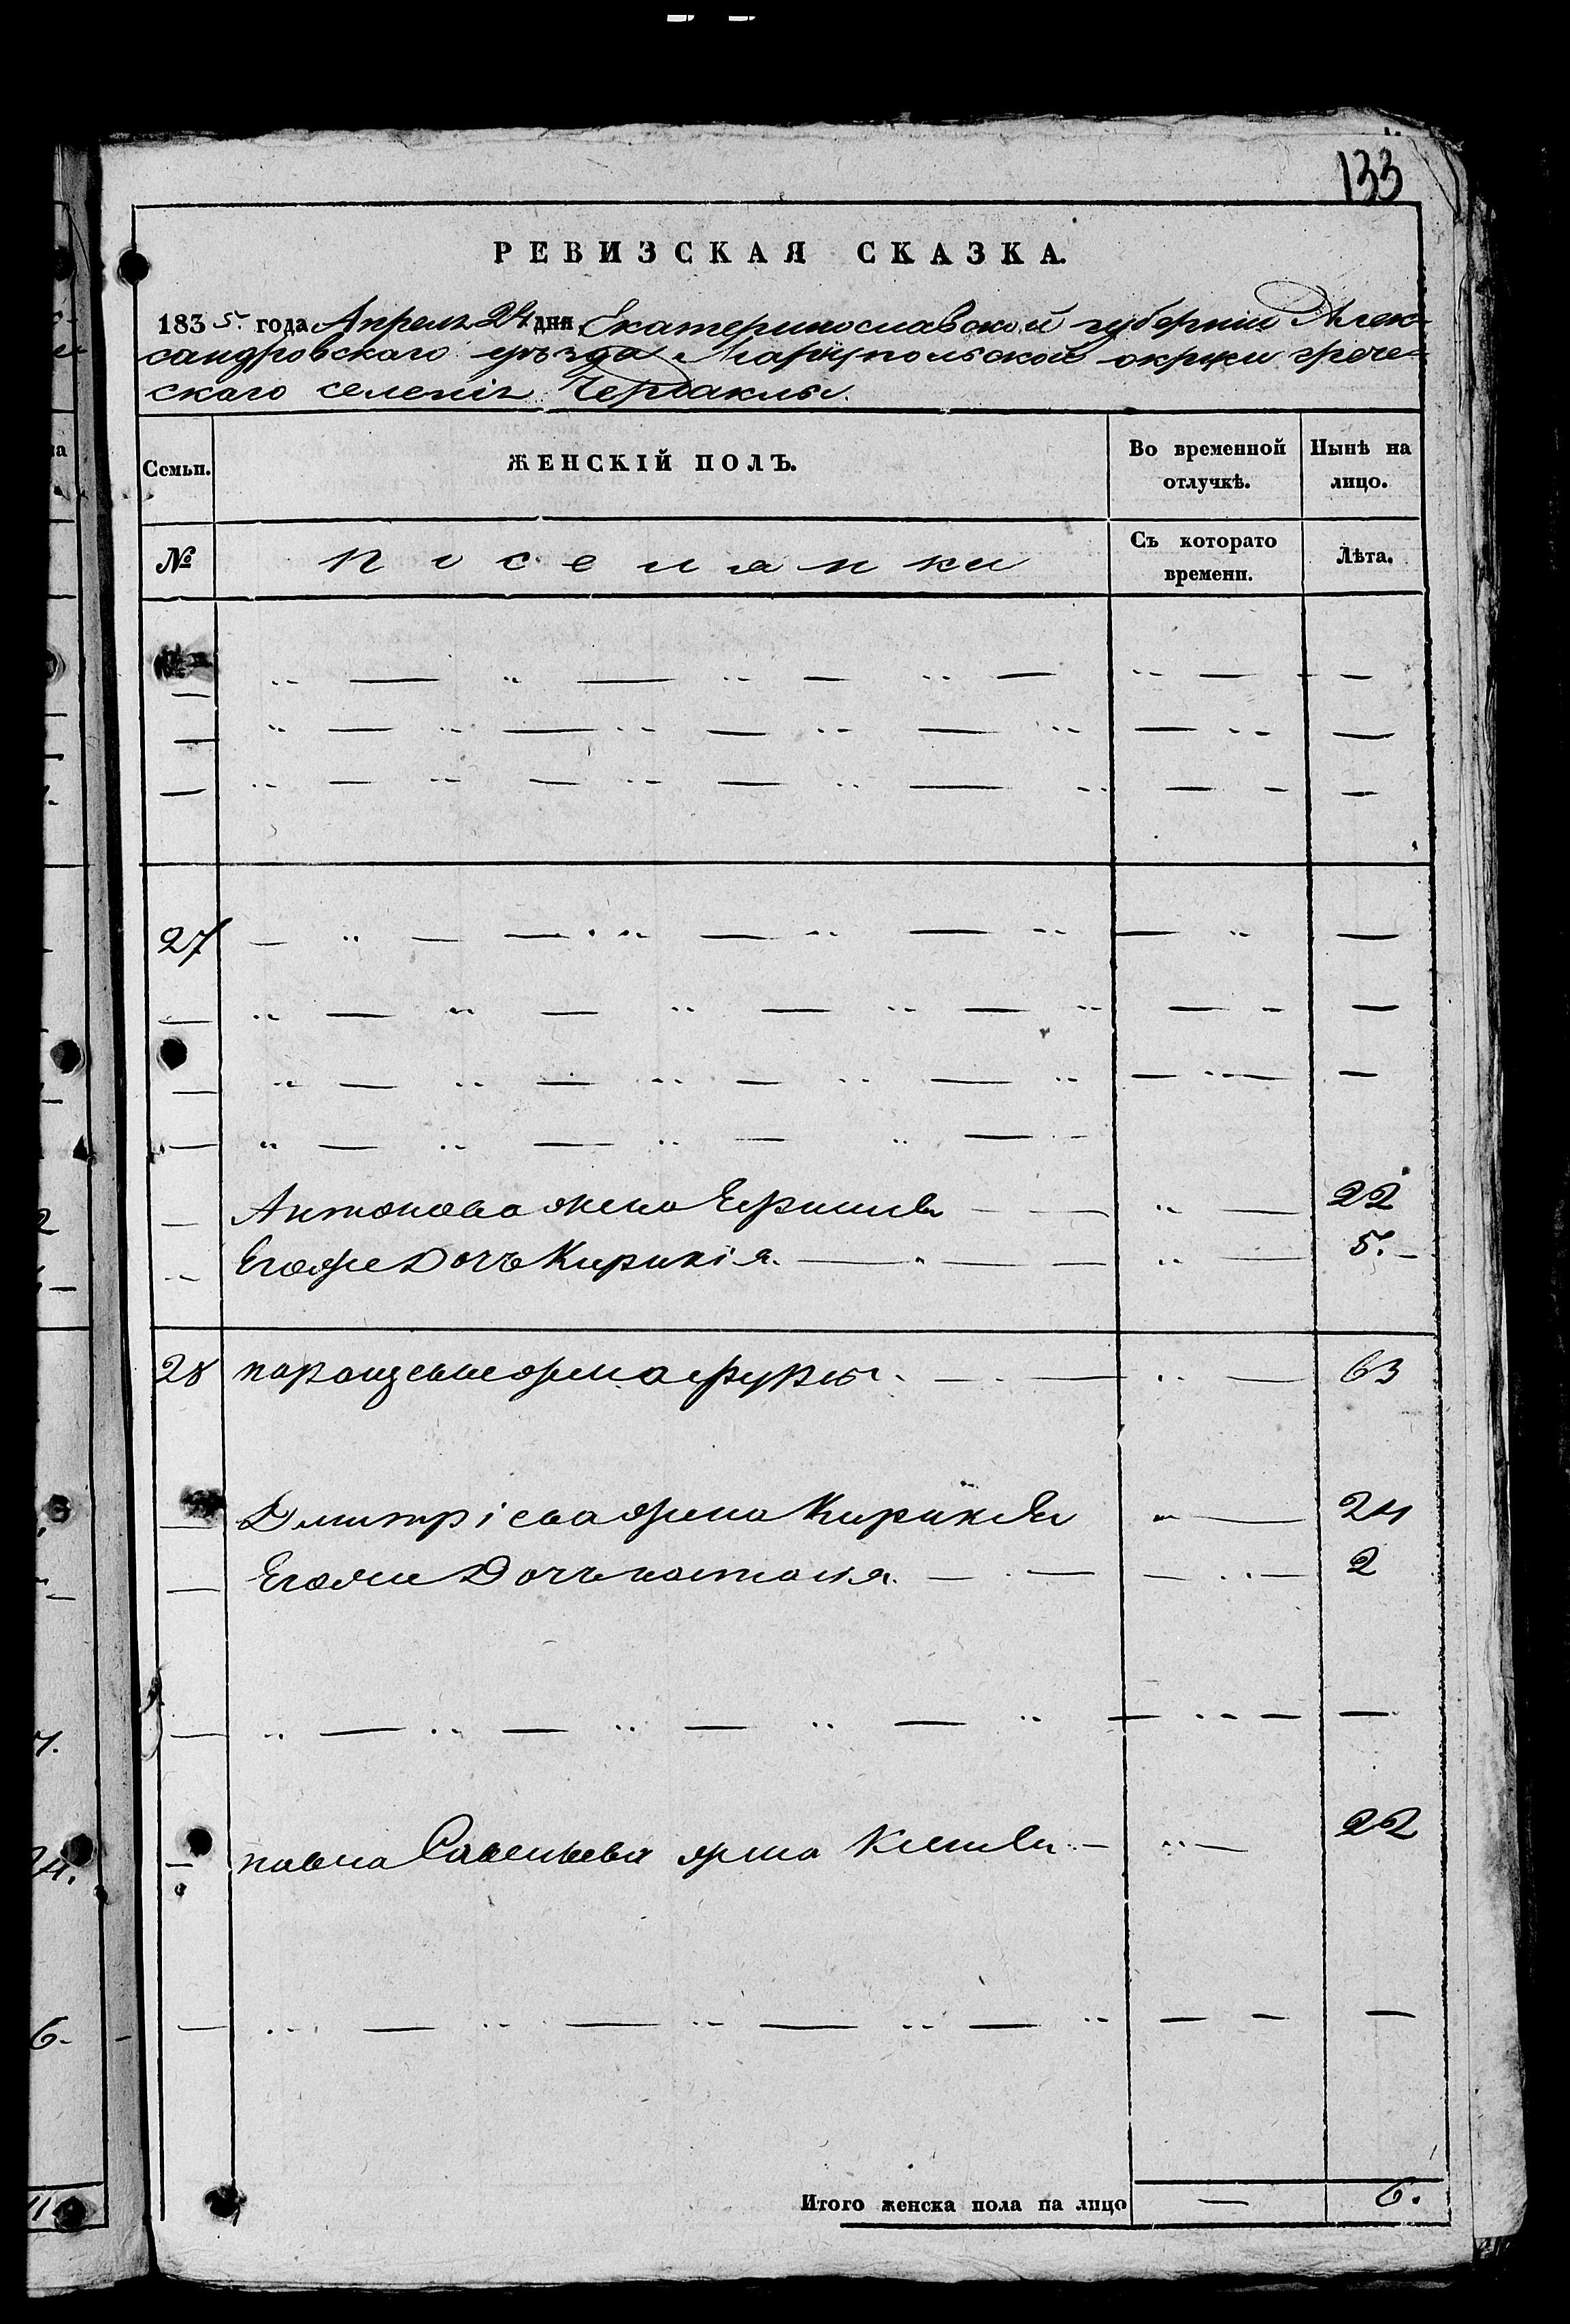 133
РЕВИЗСКАЯ СКАЗКА.
1835. года Апреля 24 дня Екатеринославской губернии Алек-
сандровскаго уѣзда Мариупольской округи грече-
скаго селенія Чердаклы.
Семьи. ЖЕНСКІЙ ПОЛЪ. Во временной отлучкѣ. Нынѣ на лицо.
№ поселянки Съ которато времени. Лѣта.
27
Антонова жена 22
Егоже Дочь Кирикія. 5.
28 63
Дмитріева жена 24
Егоже Дочь 2
павла Савельева жена 22
Итого женска пола на лицо — 6.